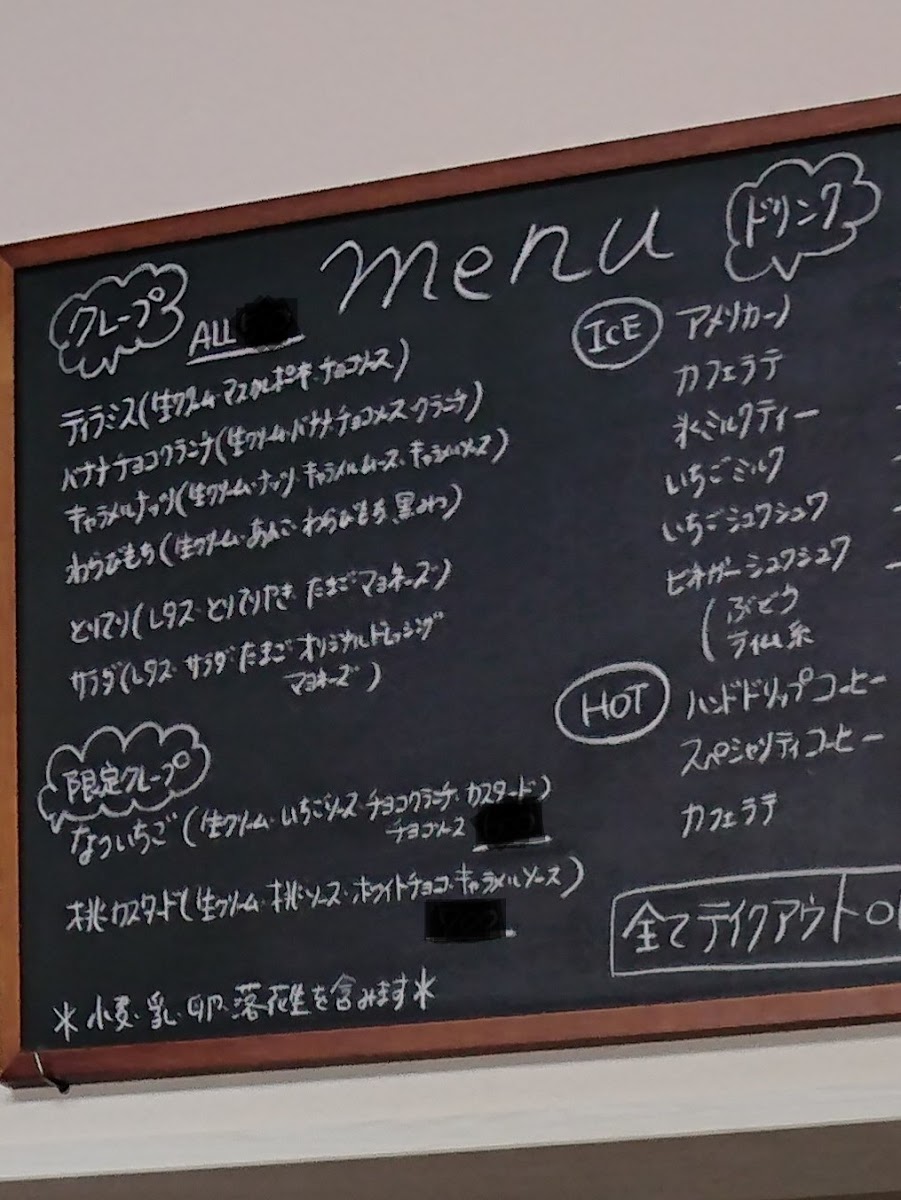 menu
クレープ
ALL
ティラミス(生クリーム・マスカルポーネ・チョコソース)
バナナチョコクランチ(生クリーム・バナナ・チョコソース・クランチ)
キャラメルナッツ(生クリーム・ナッツ・キャラメルムース・キャラメルソース)
わらびもち(生クリーム・あんこ・わらびもち 黒みつ)
とりてり(レタス・とりてりやき たまご マヨネーズ)
サラダ(レタス・サラダ たまご オリジナルドレッシング
マヨネーズ)
限定クレープ
なついちご(生クリーム・いちごソース・チョコクランチ・カスタード)
チョコソース
桃カスタード(生クリーム・桃ソース・ホワイトチョコ・キャラメルソース)
*小麦・乳・卵・落花生を含みます*
ドリンク
ICE
アメリカーノ
カフェラテ
氷ミルクティー
いちごミルク
いちごシュワシュワ
ビネガーシュワシュワ
(ぶどう
ライム系
HOT
ハンドドリップコーヒー
スペシャリティコーヒー
カフェラテ
全てテイクアウトO